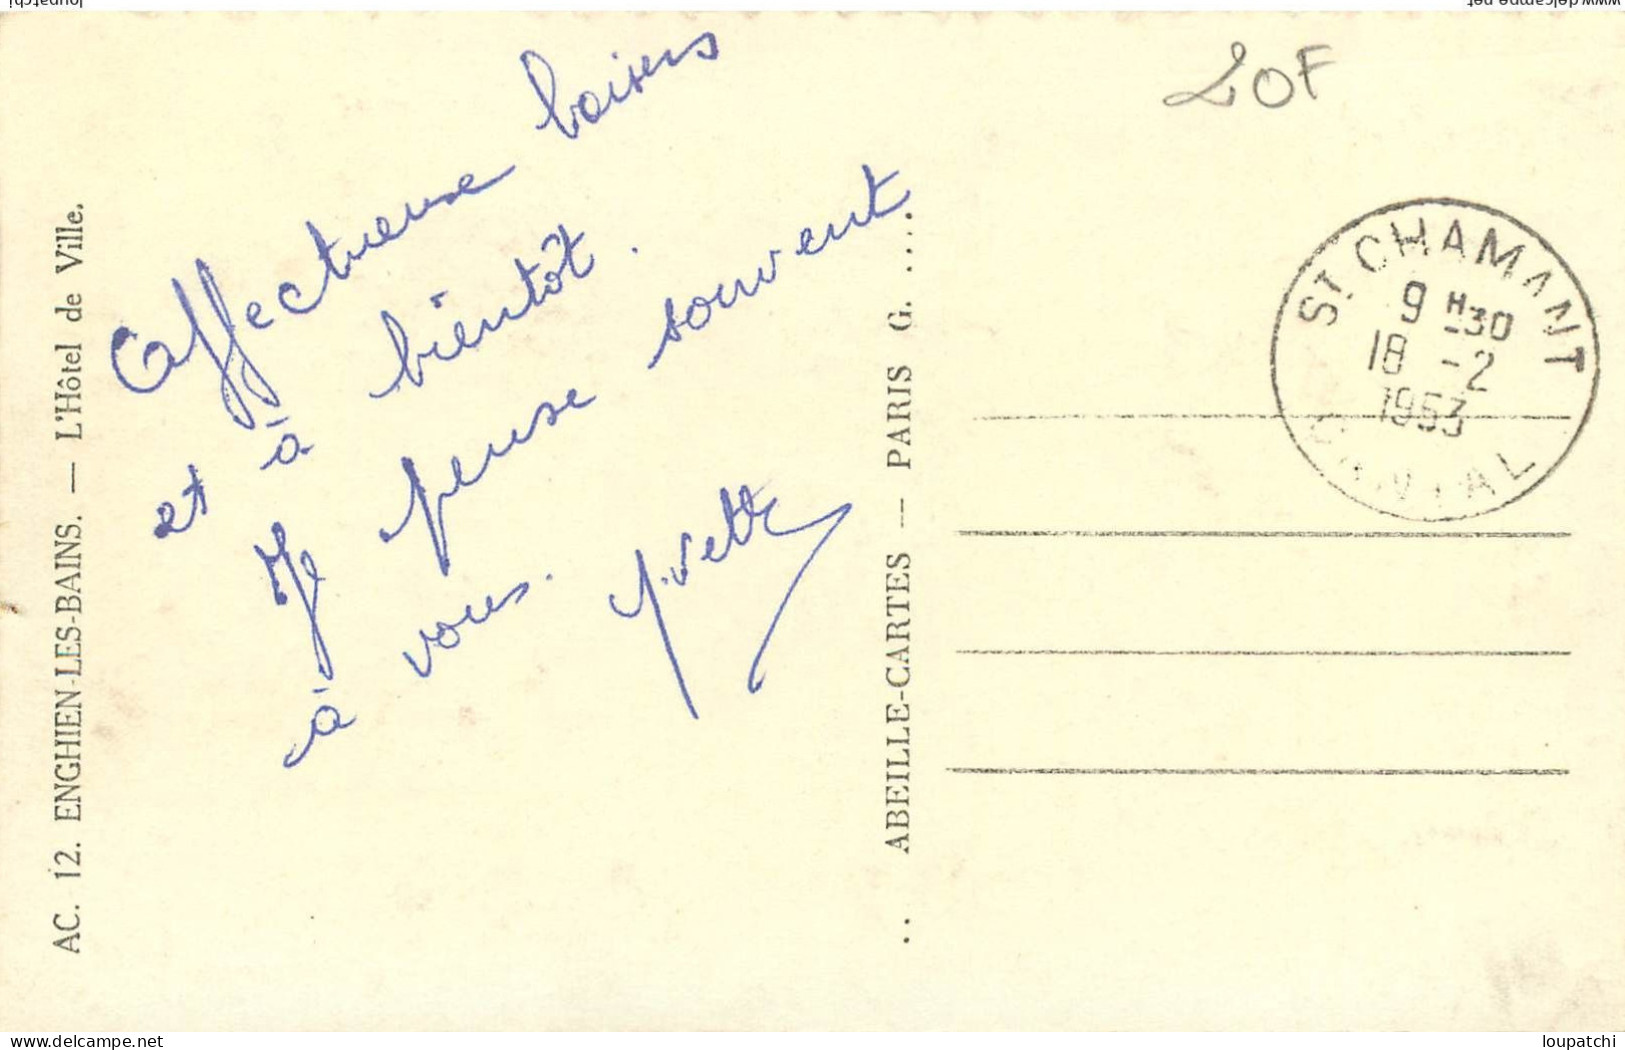 AC. 12. ENGHIEN-LES-BAINS. — L'Hôtel de Ville.
Affectueuse baisers
et à bientôt.
Je pense souvent
à vous.
Yvette
.. ABEILLE-CARTES — PARIS G. ....
20F
ST CHAMANT
9 H30
18 -2
1953
CANTAL
delcampe.net
loupatchi
www.delcampe.net
loupatchi